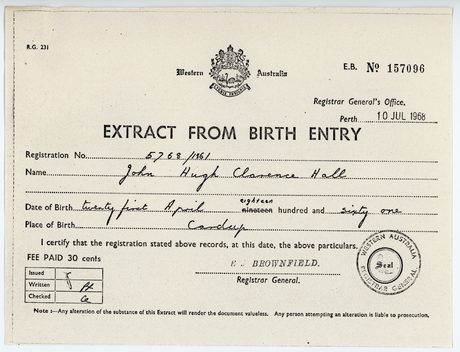 R.G. 231
Western Australia
E.B. Nº 157096
Registrar General's Office,
Perth 10 JUL 1968
EXTRACT FROM BIRTH ENTRY
Registration No. 5768/1861
Name John Hugh Clarence Hall
eighteen
Date of Birth twenty first April nineteen hundred and sixty one
Place of Birth Cardup
I certify that the registration stated above records, at this date, the above particulars.
FEE PAID 30 cents
BROWNFIELD.
Registrar General.
WESTERN AUSTRALIA
Seal
REGISTRAR GENERAL
Issued
Written
Checked
Note :—Any alteration of the substance of this Extract will render the document valueless. Any person attempting an alteration is liable to prosecution.